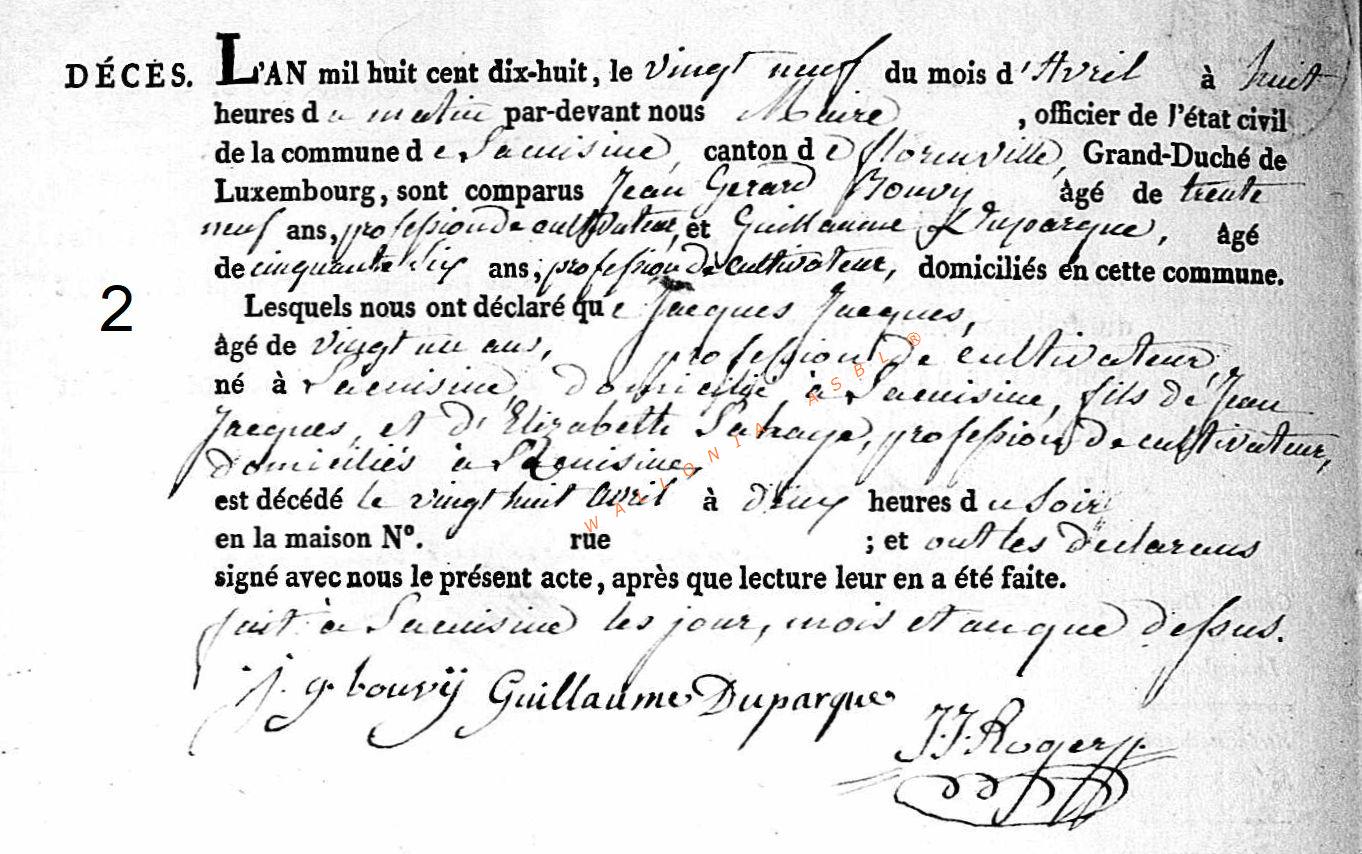 DÉCÈS. L'AN mil huit cent dix-huit, le vingt neuf du mois d'Avril à huit
heures du matin par-devant nous Maire, officier de l'état civil
de la commune de Lacuisine, canton de florenville, Grand-Duché de
Luxembourg, sont comparus Jean Gerard Bouvy âgé de trente
neuf ans, profession de cultivateur, et Guillaume Duparque, âgé
de cinquante Six ans, profession de cultivateur, domiciliés en cette commune.
2
Lesquels nous ont déclaré que Jacques Jacques,
âgé de vingt un ans, profession de cultivateur,
né à Lacuisine, domicilié à Lacuisine, fils de Jean
Jacques, et d'Elizabeth Lahaye, profession de cultivateur,
domiciliés à Lacuisine,
est décédé le vingt huit avril à deux heures du Soir
en la maison N°. rue ; et ont les declarans
signé avec nous le présent acte, après que lecture leur en a été faite.
fait à Lacuisine les jour, mois et an que dessus.
j. g. bouvÿ Guillaume Duparque
J. J. Roger
WALLONIA ASBL ®